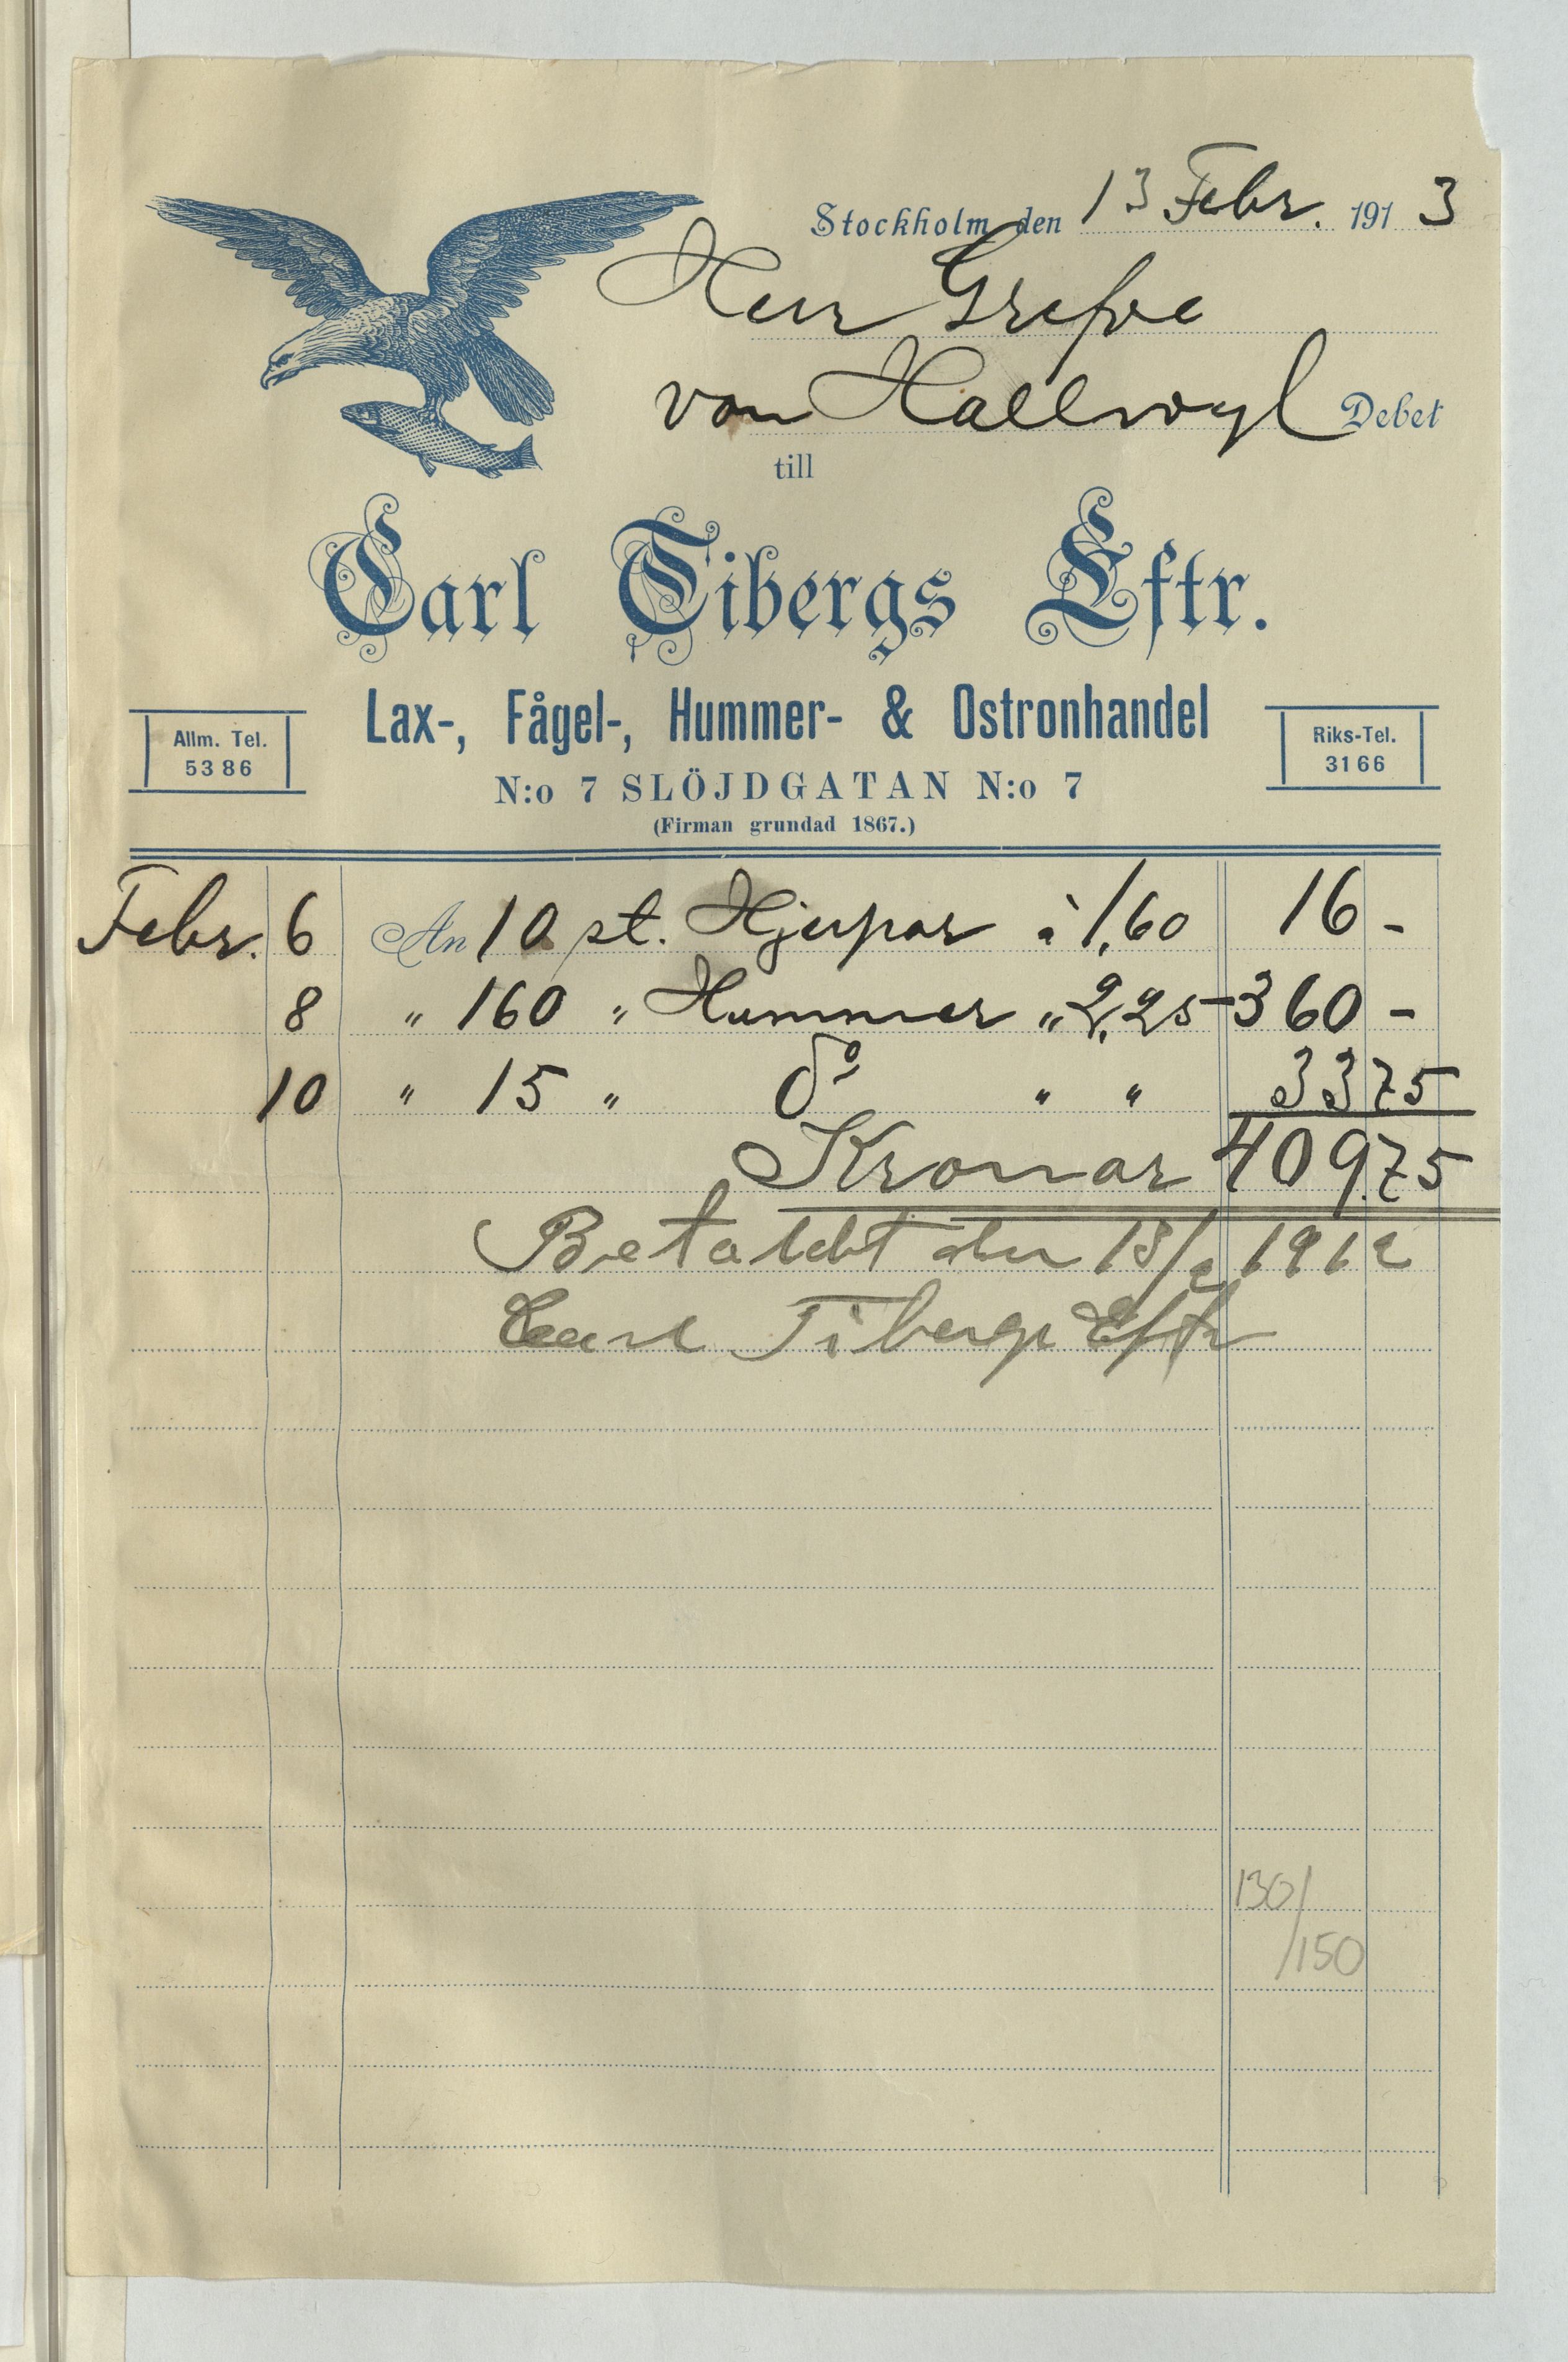 Stockholm den 13 Febr. 1913
Herr Grefve
von Hallwyl Debet
till
Carl Tibergs Eftr.
Lax-, Fågel-, Hummer- & Ostronhandel
Allm. Tel.
5386
Riks-Tel.
3166
N:o 7 SLÖJDGATAN N:o 7
(Firman grundad 1867.)
Febr. 6 An 10 st. Hjerpar à 1,60 16 -
8 " 160 " Hummer " 2,25 360 -
10 " 15 " do " " 33 75
Kronor 409.75
Betaldt den 13/2 1912
Carl Tibergs Eftr
130/
/150